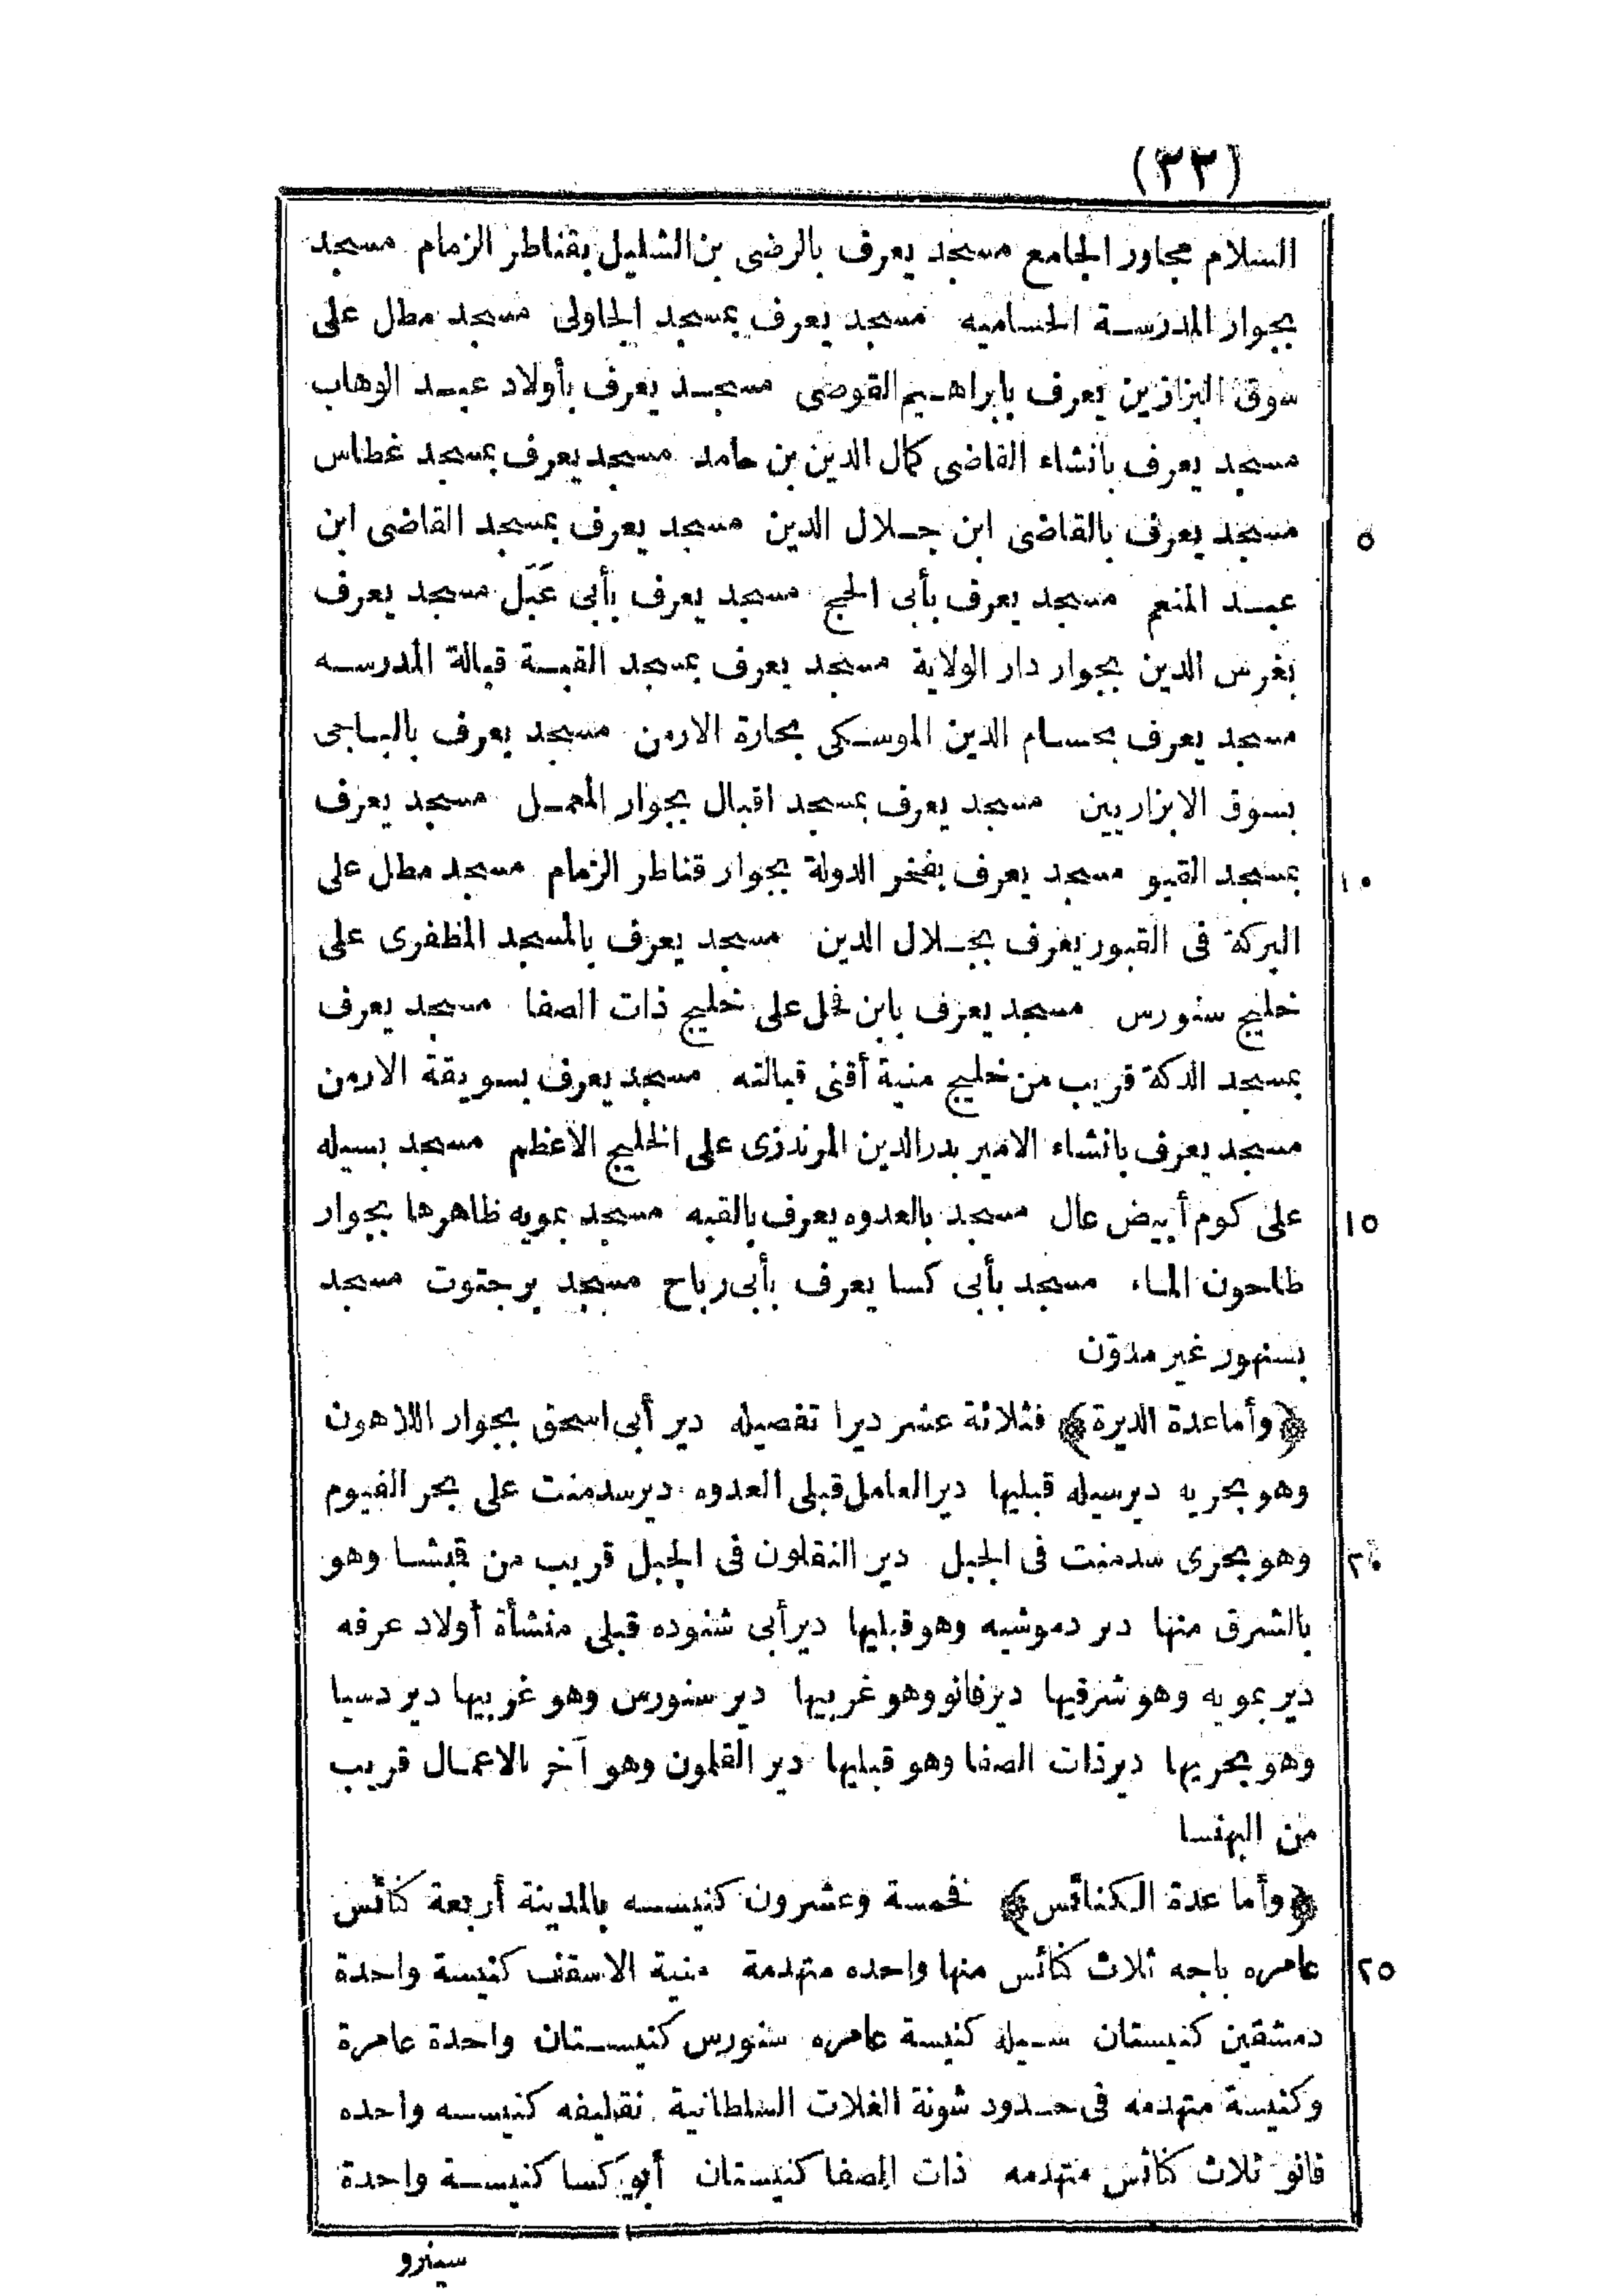 (٢٢)
السلام مجاور الجامع مسجد يعرف بالرضى بن الشليل بقناطر الزمام مسجد
بجوار المدرسة الحساميه مسجد يعرف بمسجد الجاولى مسجد مطل على
سوق البزازين يعرف بابراهيم القوصى مسجد يعرف بأولاد عبد الوهاب
مسجد يعرف بانشاء القاضى كمال الدين بن حامد مسجد يعرف بمسجد غطاس
مسجد يعرف بالقاضى ابن جلال الدين مسجد يعرف بمسجد القاضى ابن
٥
عبد المنعم مسجد يعرف بأبى الحج مسجد يعرف بأبى مسجد يعرف
بغرس الدين بجوار دار الولاية مسجد يعرف بمسجد القبة قبالة المدرسه
مسجد يعرف بحسام الدين الموسكى بحارة الارمن مسجد يعرف بالباجى
بسوق الابزاريين مسجد يعرف بمسجد اقبال بجوار المعمل مسجد يعرف
بمسجد القبو مسجد يعرف بفخر الدولة بجوار قناطر الزمام مسجد مطل على
١٠
البركة فى القبور يعرف بجلال الدين مسجد يعرف بالمسجد المظفرى على
خليج سنورس مسجد يعرف بابن فحل على خليج ذات الصفا مسجد يعرف
بمسجد الدكة قريب من خليج منية أقنى قبالته مسجد يعرف بسويقة الارمن
مسجد يعرف بانشاء الامير بدر الدين المرندزى على الخليج الاعظم مسجد بسيله
على كوم أبيض عال مسجد بالعدوه يعرف بالقبه مسجد بمويه ظاهرها بجوار
١٥
طاحون الماء مسجد بأبى كسا يعرف بأبى رباح مسجد ببرجتوت مسجد
بسنهور غير مدوّن
﴿وأما عدة الديرة﴾ فثلاثة عشر ديرا تفصيله دير أبى اسحق بجوار اللاهون
وهو بحريه دير سيله قبليها دير العامل قبلى العدوه دير سدمنت على بحر الفيوم
وهو بحرى سدمنت فى الجبل دير النقلون فى الجبل قريب من قبشا وهو
٢٠
بالشرق منها دير دموشيه وهو قبليها دير أبى شنوده قبلى منشأة أولاد عرفه
دير بمويه وهو شرقيها دير فانو وهو غربيها دير سنورس وهو غربيها دير دسيا
وهو بحريها دير ذات الصفا وهو قبليها دير القلمون وهو آخر الاعمال قريب
من البهنسا
﴿وأما عدة الكنائس﴾ فخمسة وعشرون كنيسه بالمدينة أربعة كنائس
عامره باجه ثلاث كنائس منها واحده متهدمة منية الاسقف كنيسة واحدة
٢٥
دمشقين كنيستان سيله كنيسة عامره سنورس كنيستان واحدة عامرة
وكنيسة متهدمه فى حدود شونة الغلات السلطانية نقليفه كنيسه واحده
فانو ثلاث كنائس متهدمه ذات الصفا كنيستان أبو كسا كنيسة واحدة
سينرو